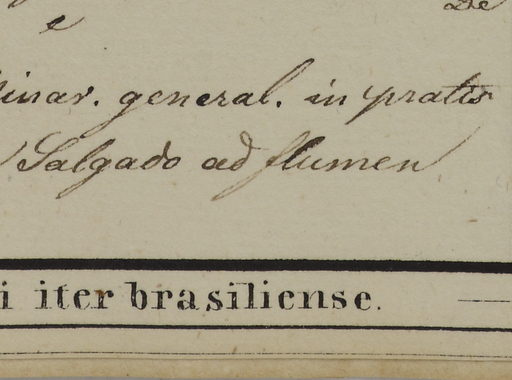 De
e
inar. general. in pratis
Salgado ad flumen
i iter brasiliense.